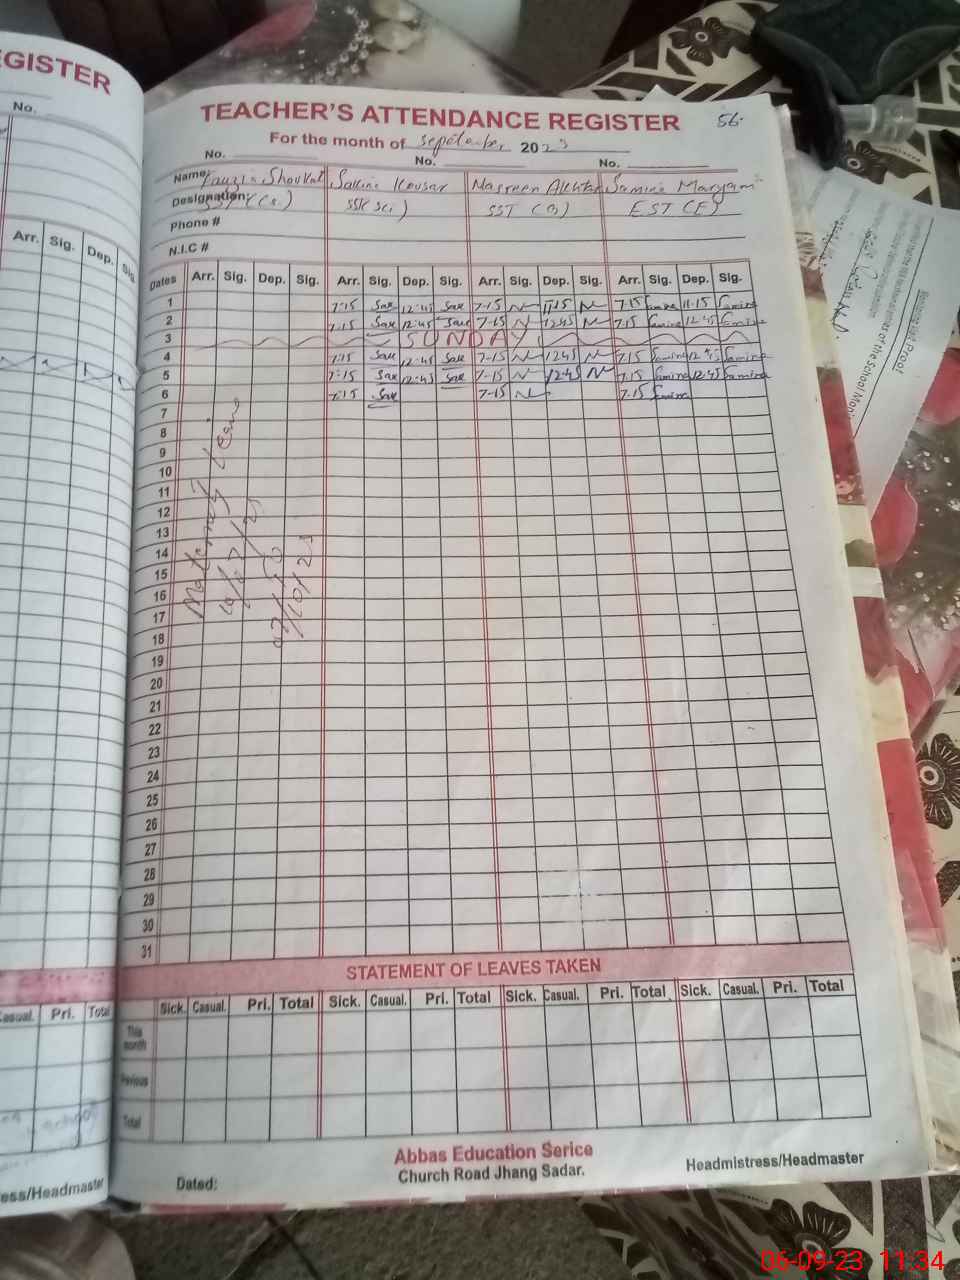 EGISTER
No.
Arr. Sig. Dep. Sig.
Casual. Pri. Total
ess/Headmaster
TEACHER'S ATTENDANCE REGISTER 56.
For the month of september 2023
No. No. No.
Name: Fauzia Shoukat Sakina Kousar Nasreen Akhtar Samina Maryam
Designation: SST (Sc) SST (G) EST (E)
Phone #
N.I.C #
Dates Arr. Sig. Dep. Sig. Arr. Sig. Dep. Sig. Arr. Sig. Dep. Sig. Arr. Sig. Dep. Sig.
1 7:15 Sak 12:45 Sak 7-15 11:15 7:15 Samina 11-15 Samina
2 7:15 Sak 12:45 Sak 7-15 1245 7:15 Samina 12:45 Samina
3 SUNDAY
4 7:15 Sak 12:45 Sak 7-15 1245 7:15 Samina 12:45 Samina
5 7:15 Sak 12:45 Sak 7-15 12:45 7:15 Samina 12:45 Samina
6 7:15 Sak 7-15 7:15 Samina
7
8
9
10
11
12
13
14
15
16
17
18
19
20
21
22
23
24
25
26
27
28
29
30
31
Maternity leave
to
07/10/23
STATEMENT OF LEAVES TAKEN
Sick. Casual. Pri. Total Sick. Casual. Pri. Total Sick. Casual. Pri. Total Sick. Casual. Pri. Total
This month
Previous
Total
Abbas Education Serice
Church Road Jhang Sadar.
Dated:
Headmistress/Headmaster
06-09-23 11:34